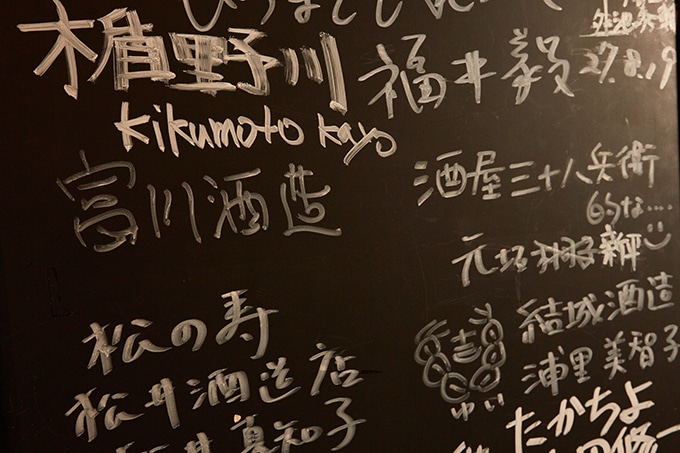 楯野川
Kikumoto Kayo
福井毅
27.8.19
富川酒造
酒屋三十八兵衛
的な…
元坂
新平
松の寿
松井酒造店
真知子
結城酒造
浦里美智子
ゆい
たかちよ
修一